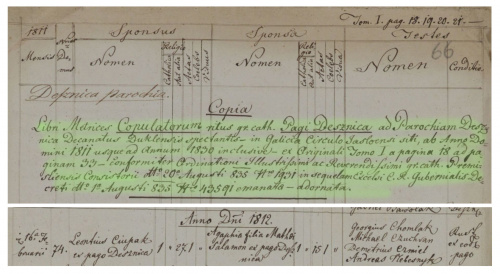 Tom. I. pag. 18. 19. 20. 21.
1811
Sponsus
Sponsa
Testes
66
Mensis
Nomen
Religio
Catholica
Aut alia
Aetas
Caelebs
Viduus
Nomen
Religio
Catholica
Aut alia
Aetas
Caelebs
Vidua
Nomen
Conditio
Desznica parochia
Copia
Libri Metrices Copulatorum ritus gr. cath. Pagi Desznica ad Parochiam Desz
nica Decanatus Duklensis spectantis in Galicia Circulo Jasloensi siti, ab Anno Do
mini 1811 usque ad Annum 1830 inclusive ex Originali Tomo I a pagina 18 ad pa
ginam 33 conformiter Ordinationi Illustrissimi ac Reverendissimi gr. cath. Premis
liensis Consistorii 20 Augusti 835 N 1931 in sequelam Excelsi C. R. Gubernialis De
creti Augusti 835 N 43591 emanatae adornata.
Anno Dni 1812.
74.
Leontius Ciupak
ex pago Desznica
1
27
1
Agaphia filia Mathei
Salamon ex pago Desz
nica
1
15
1
Georgius Chomiak
Michael
Demetrius
Andreas
ex eod
pago